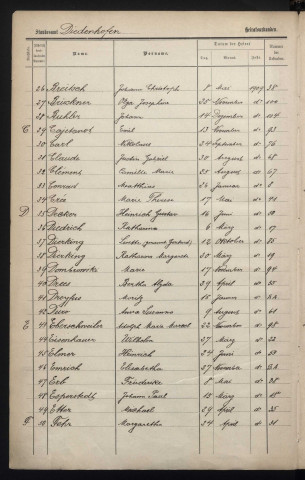 Standesamt Diedenhofen Heiratsurkunden.
Name. Vorname. Datum der Heirat.
Tag. Monat. Jahr.
26 Breitsch Johann Christoph 8 Mai 1909 38
27 Brückner Olga Josephine 25 November d. 100
28 Buchler Johann 14 Dezember d. 104
C 29 Cajetanot Emil 13 November d. 93
30 Carl Nikolaus 24 September d. 76
31 Claude Justin Gabriel 30 August d. 68
32 Clement Camille Marie 25 August d. 67
33 Conrad Matthias 26 Januar d. 8
34 Marie Therese 17 Mai d. 41
D 35 Heinrich Gustav 16 Juni d. 50
36 Diedrich Katharina 6 März d. 17
37 Dierking 12 Oktober d. 85
38 Dierking Katharina Margareta 20 März d. 19
39 Dombrowski Marie 17 November d. 94
40 Drees Bertha Alyda 29 April d. 35
41 Dreyfus Moritz 15 Januar d.
42 Anna Susanna 9 August d. 61
E 43 Eberschweiler Adolph Marie Marcel 22 November d. 98
44 Eisenhauer Wilhelm 27 März d. 22
45 Elmer Heinrich 24 Juni d. 53
46 Emrich Elisabetha 27 November d.
47 Erb Friederike 8 Mai d. 38
48 Esperstedt Johann Paul 13 März d. 18
49 Etter Michael 29 April d. 35
F 50 Feltz Margaretha 24 April d. 31